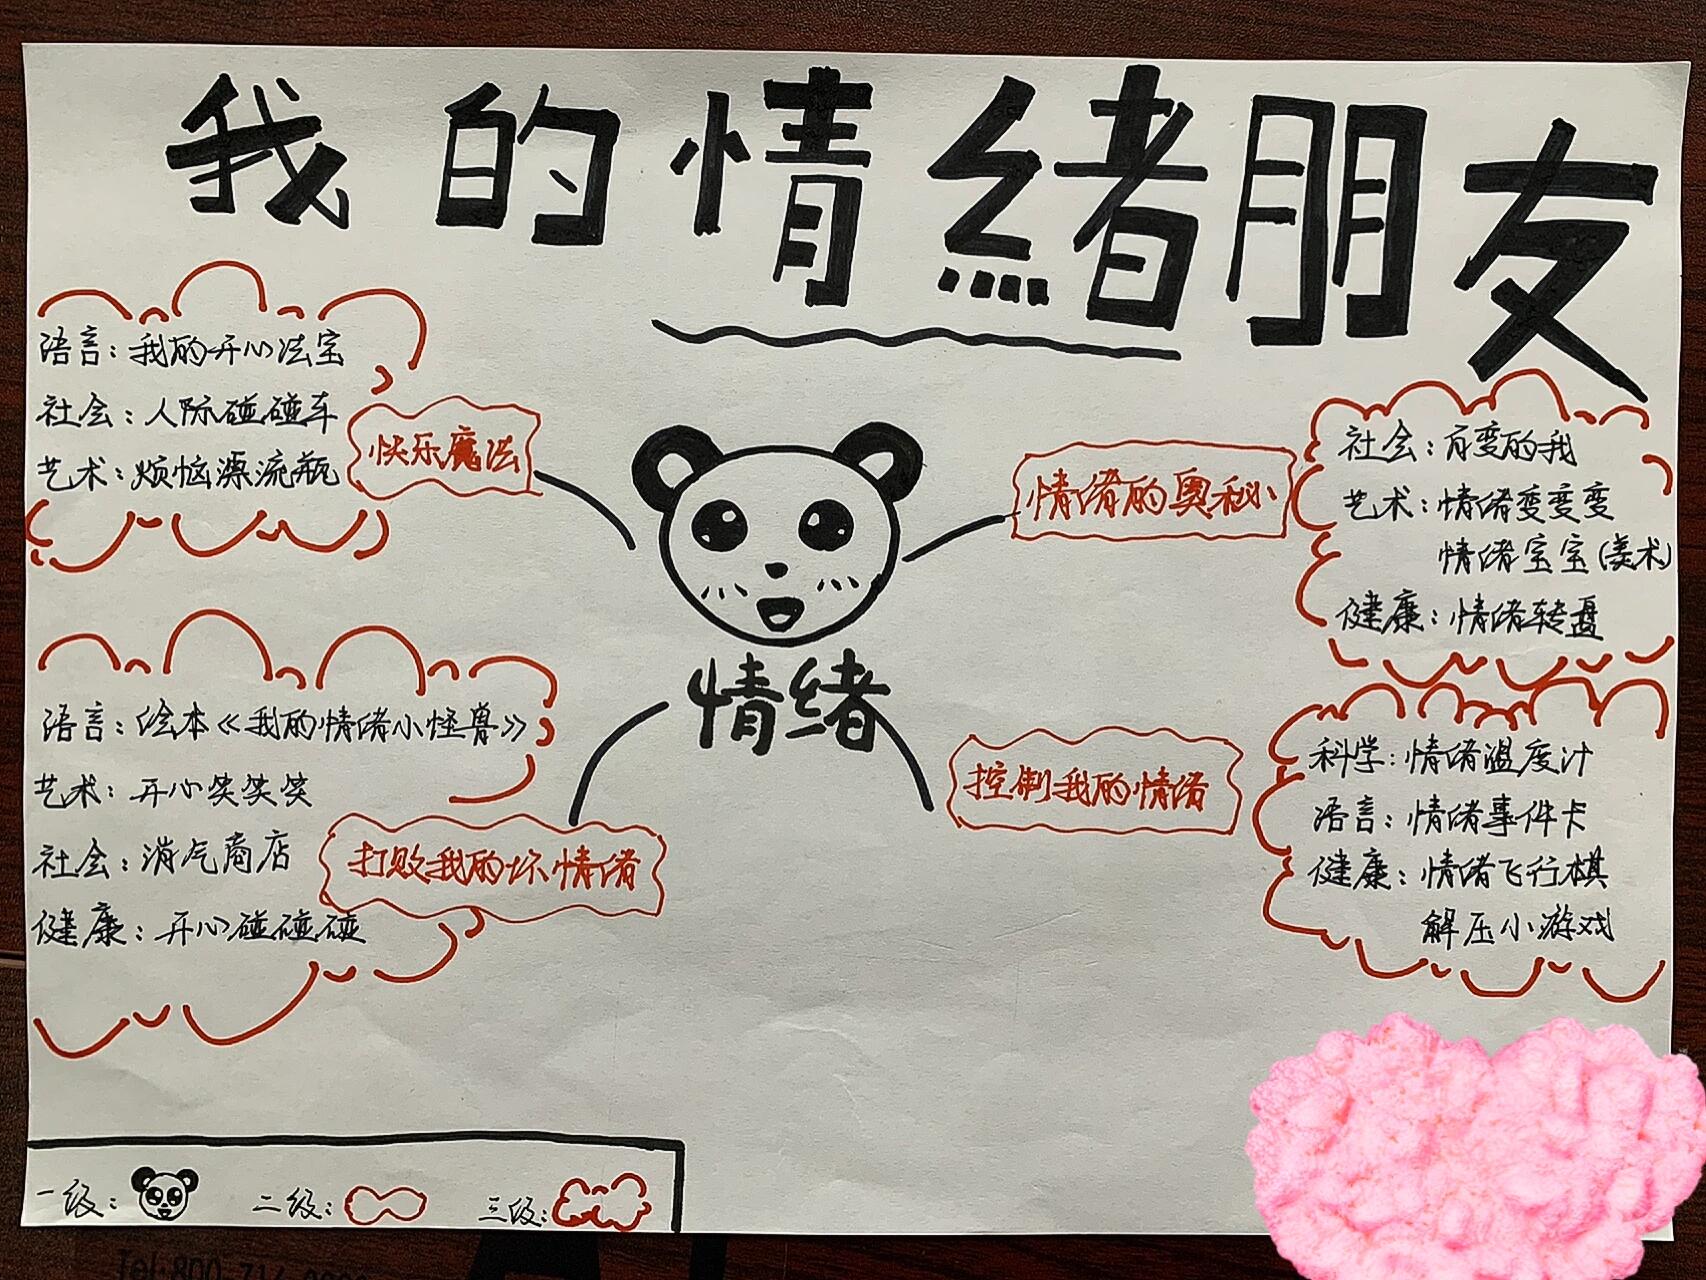 我的情緒朋友
语言：我的开心法宝
社会：人际碰碰车
艺术：烦恼漂流瓶
快乐魔法
情绪的奥秘
社会：百变的我
艺术：情绪变变变
情绪宝宝(美术)
健康：情绪转盘
情绪
语言：绘本《我的情绪小怪兽》
艺术：开心笑笑笑
社会：消气商店
健康：开心碰碰碰
打败我的坏情绪
控制我的情绪
科学：情绪温度计
语言：情绪事件卡
健康：情绪飞行棋
解压小游戏
一级：
二级：
三级：